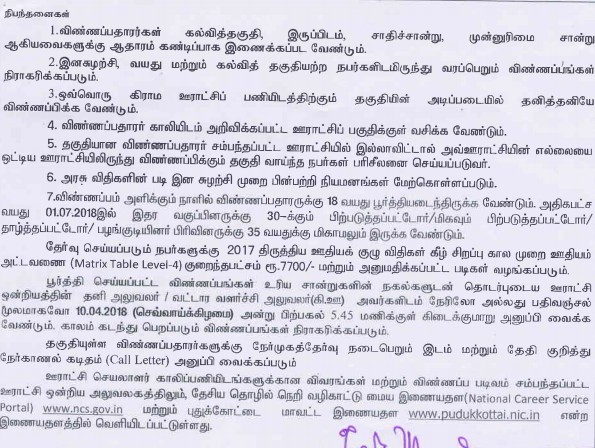 நிபந்தனைகள்
1.விண்ணப்பதாரர்கள் கல்வித்தகுதி, இருப்பிடம், சாதிச்சான்று, முன்னுரிமை சான்று
ஆகியவைகளுக்கு ஆதாரம் கண்டிப்பாக இணைக்கப்பட வேண்டும்.
2.இனசுழற்சி, வயது மற்றும் கல்வித் தகுதியற்ற நபர்களிடமிருந்து வரப்பெறும் விண்ணப்பங்கள்
நிராகரிக்கப்படும்.
3.ஒவ்வொரு கிராம ஊராட்சிப் பணியிடத்திற்கும் தகுதியின் அடிப்படையில் தனித்தனியே
விண்ணப்பிக்க வேண்டும்.
4. விண்ணப்பதாரர் காலியிடம் அறிவிக்கப்பட்ட ஊராட்சிப் பகுதிக்குள் வசிக்க வேண்டும்.
5. தகுதியான விண்ணப்பதாரர் சம்பந்தப்பட்ட ஊராட்சியில் இல்லாவிட்டால் அவ்ஊராட்சியின் எல்லையை
ஒட்டிய ஊராட்சியிலிருந்து விண்ணப்பிக்கும் தகுதி வாய்ந்த நபர்கள் பரிசீலனை செய்யப்படுவர்.
6. அரசு விதிகளின் படி இன சுழற்சி முறை பின்பற்றி நியமனங்கள் மேற்கொள்ளப்படும்.
7.விண்ணப்பம் அளிக்கும் நாளில் விண்ணப்பதாரருக்கு 18 வயது பூர்த்தியடைந்திருக்க வேண்டும். அதிகபட்ச
வயது 01.07.2018இல் இதர வகுப்பினருக்கு 30-க்கும் பிற்படுத்தப்பட்டோர்/மிகவும் பிற்படுத்தப்பட்டோர்/
தாழ்த்தப்பட்டோர்/ பழங்குடியினர் பிரிவினருக்கு 35 வயதுக்கு மிகாமலும் இருக்க வேண்டும்.
தேர்வு செய்யப்படும் நபர்களுக்கு 2017 திருத்திய ஊதியக் குழு விதிகள் கீழ் சிறப்பு கால முறை ஊதியம்
அட்டவணை (Matrix Table Level-4) குறைந்தபட்சம் ரூ.7700/- மற்றும் அனுமதிக்கப்பட்ட படிகள் வழங்கப்படும்.
பூர்த்தி செய்யப்பட்ட விண்ணப்பங்கள் உரிய சான்றுகளின் நகல்களுடன் தொடர்புடைய ஊராட்சி
ஒன்றியத்தின் தனி அலுவலர் / வட்டார வளர்ச்சி அலுவலர்(கி.ஊ) அவர்களிடம் நேரிலோ அல்லது பதிவஞ்சல்
மூலமாகவோ 10.04.2018 (செவ்வாய்க்கிழமை) அன்று பிற்பகல் 5.45 மணிக்குள் கிடைக்குமாறு அனுப்பி வைக்க
வேண்டும். காலம் கடந்து பெறப்படும் விண்ணப்பங்கள் நிராகரிக்கப்படும்.
தகுதியுள்ள விண்ணப்பதாரர்களுக்கு நேர்முகத்தேர்வு நடைபெறும் இடம் மற்றும் தேதி குறித்து
நேர்காணல் கடிதம் (Call Letter) அனுப்பி வைக்கப்படும்
ஊராட்சி செயலாளர் காலிப்பணியிடங்களுக்கான விவரங்கள் மற்றும் விண்ணப்ப படிவம் சம்பந்தப்பட்ட
ஊராட்சி ஒன்றிய அலுவலகத்திலும், தேசிய தொழில் நெறி வழிகாட்டு மைய இணையதள(National Career Service
Portal) www.ncs.gov.in மற்றும் புதுக்கோட்டை மாவட்ட இணையதள www.pudukkottai.nic.in என்ற
இணையதளத்தில் வெளியிடப்பட்டுள்ளது.